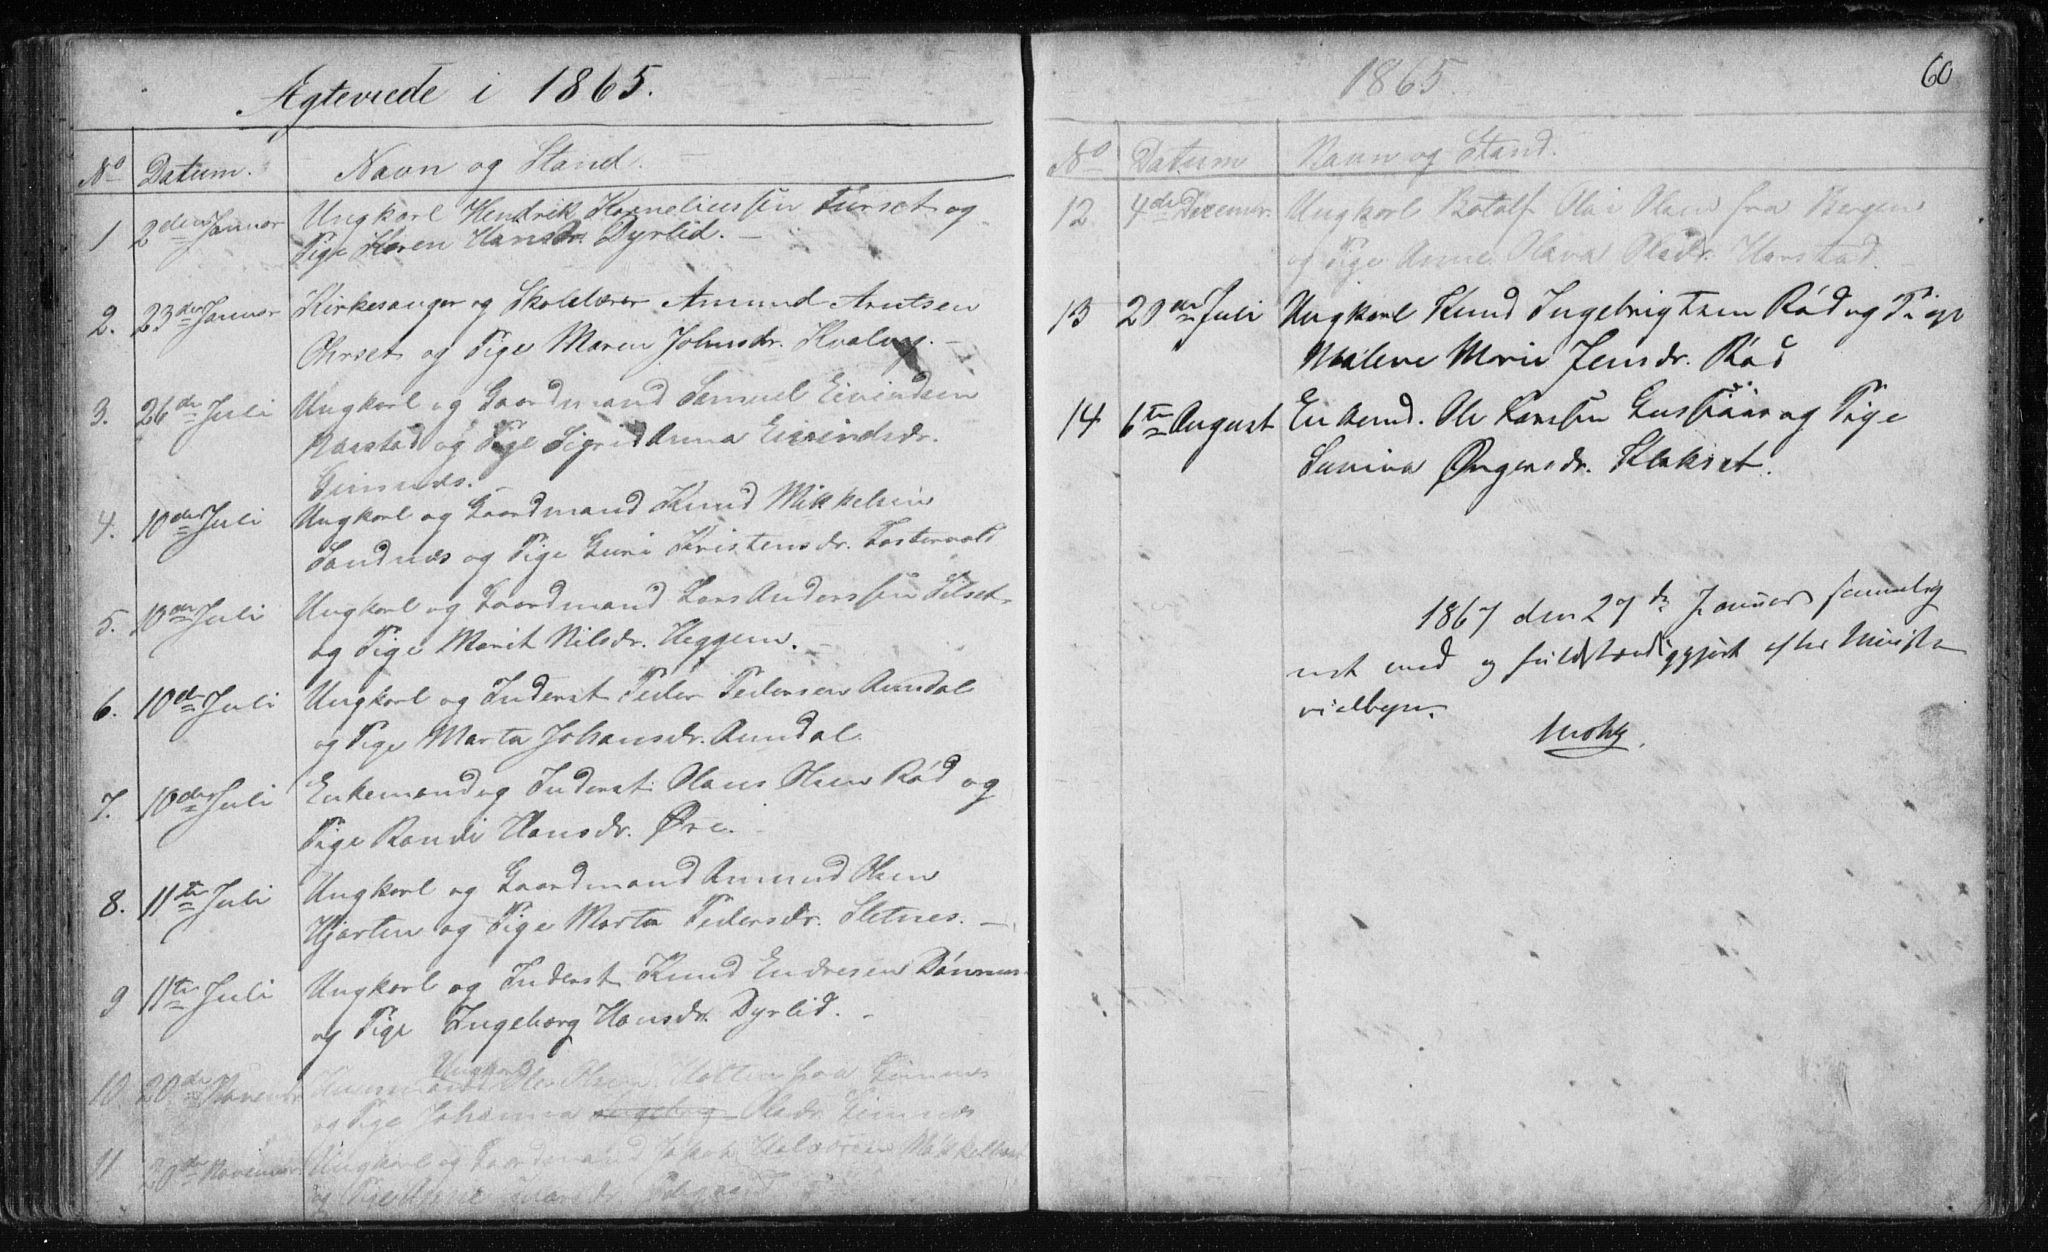 Ægteviede i 1865.
No Datum. Navn og Stand.
1 2den Januar Ungkarl Hendrik Korneliussen Furset og
Pige Karen Hansdr. Dyrlid.
2. 23de Januar Kirkesanger og Skolelærer Amund Arntsen
Ohrset og Pige Maren Johnsdr. Kvalvg.
3. 26de Juli Ungkarl og Gaardmand Samuel Eivindsen
Naastad og Pige Sigrid Anna Eivindsdr.
Gimnæs.
4. 10de Juli Ungkarl og Gaardmand Knud Mikkelsen
Sandnæs og Pige Guri Kristensdr. Fostervold
5. 10de Juli Ungkarl og Gaardmand Lars Anderssen Silset
og Pige Marit Nilsdr. Heggem.
6. 10de Juli Ungkarl og Inderst Peder Pedersen Aundal
og Pige Marta Johansdr. Aundal.
7. 10de Juli Enkemand og Inderst Hans Olsen Rød og
Pige Randi Hansdr. Øre.
8. 11te Juli Ungkarl og Gaardmand Amund Olsen
Hjorten og Pige Marta Pedersdr. Sletnes.
9 11te Juli Ungkarl og Inderst Knud Endresen Dønnæs
og Pige Ingeborg Hansdr. Dyrlid.
Ungkarl
10. 20de November Ole Olsen Holten fra Gimnæs
og Pige Johanna Ingeborg Olsdr. Gimnæs
11 20de November Ungkarl og Gaardmand Jakob Halvorsen
og Pige Anne
1865. 60
No Datum Navn og Stand.
12 4de Decemer. Ungkarl Botolf Olai Olsen fra Bergen
og Pige Anne Olava Olsdr. Harstad.
13 20de Juli Ungkarl Knud Ingebrigtsen Rød og Pige
Malene Marie Jensdr. Rød
14 6te August Enkemd. Ole Larssen Gusiaas og Pige
Savina Ørgersdr. Stokset.
1867 den 27de Januar
med og fuldstændiggjort efter Ministe
rialbgn.